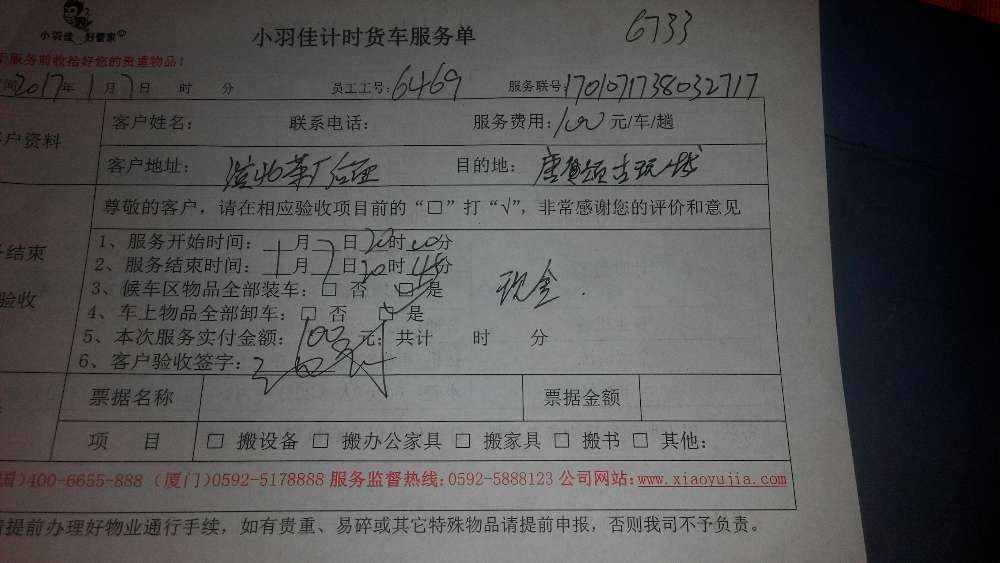 小羽佳 好管家
小羽佳计时货车服务单
6733
服务前验收拾好您的贵重物品!
2017年1月7日 时 分 员工工号:6469 服务联号:1701071738032717
客户资料
客户姓名: 联系电话: 服务费用:100元/车/趟
客户地址: 目的地:
尊敬的客户,请在相应验收项目前的“□”打“√”,非常感谢您的评价和意见
结束
验收
1、服务开始时间: 月7日20时00分
2、服务结束时间: 月7日20时45分
3、候车区物品全部装车:□ 否 □ 是
现金.
4、车上物品全部卸车:□ 否 □ 是
5、本次服务实付金额:100元;共计 时 分
6、客户验收签字:
票据名称 票据金额
项 目 □ 搬设备 □ 搬办公家具 □ 搬家具 □ 搬书 □ 其他:
国)400-6655-888 (厦门)0592-5178888 服务监督热线:0592-5888123 公司网站:www.xiaoyujia.com
请提前办理好物业通行手续,如有贵重、易碎或其它特殊物品请提前申报,否则我司不予负责。